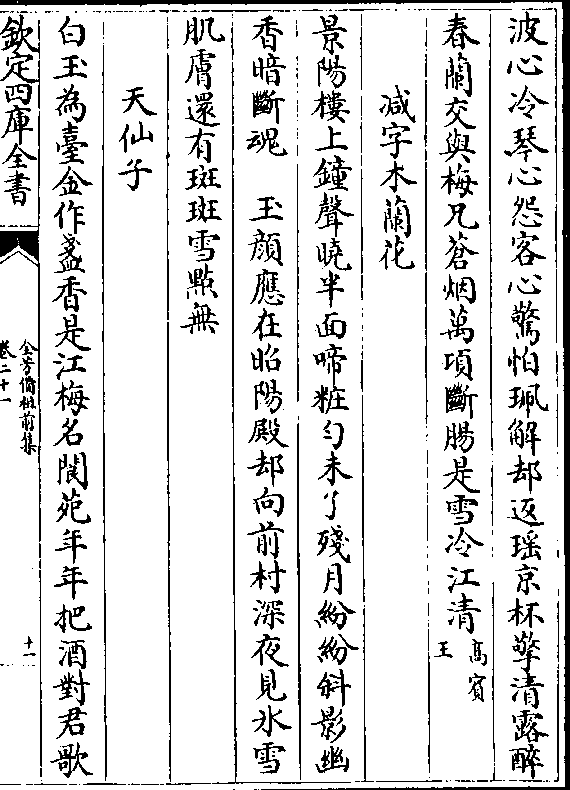 波心冷琴心怨客心驚怕珮解却返瑶京杯擎清露醉
春蘭交與梅兄蒼烟萬頃斷腸是雪冷江清高賓
王
減字木蘭花
景陽樓上鐘聲曉半面啼粧勻未了殘月紛紛斜影幽
香暗斷魂　玉顔應在昭陽殿却向前村深夜見氷雪
肌膚還有斑斑雪點無
天仙子
白玉為臺金作盞香是江梅名閬苑年年把酒對君歌
欽定四庫全書
全芳備祖前集
卷二十一
十一